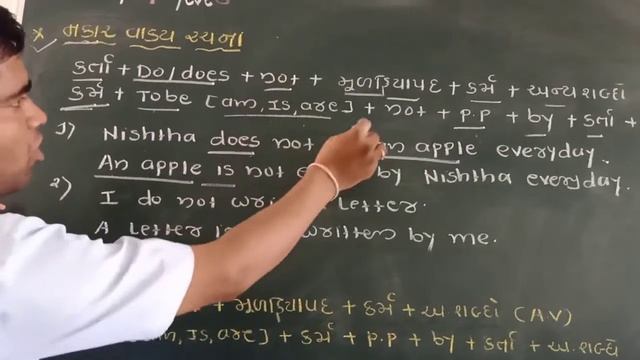 * નકાર વાક્ય રચના
કર્તા + Do/does + not + મૂળક્રિયાપદ + કર્મ + અન્ય શબ્દો
કર્મ + Tobe [am, Is, are] + not + p.p + by + કર્તા +
1) Nishtha does not an apple everyday.
An apple is not by Nishtha everyday.
2) I do not letter.
A letter written by me.
+ મૂળક્રિયાપદ + કર્મ + અ. શબ્દો (AV)
am, Is, are] + કર્મ + p.p + by + કર્તા + અ. શબ્દો